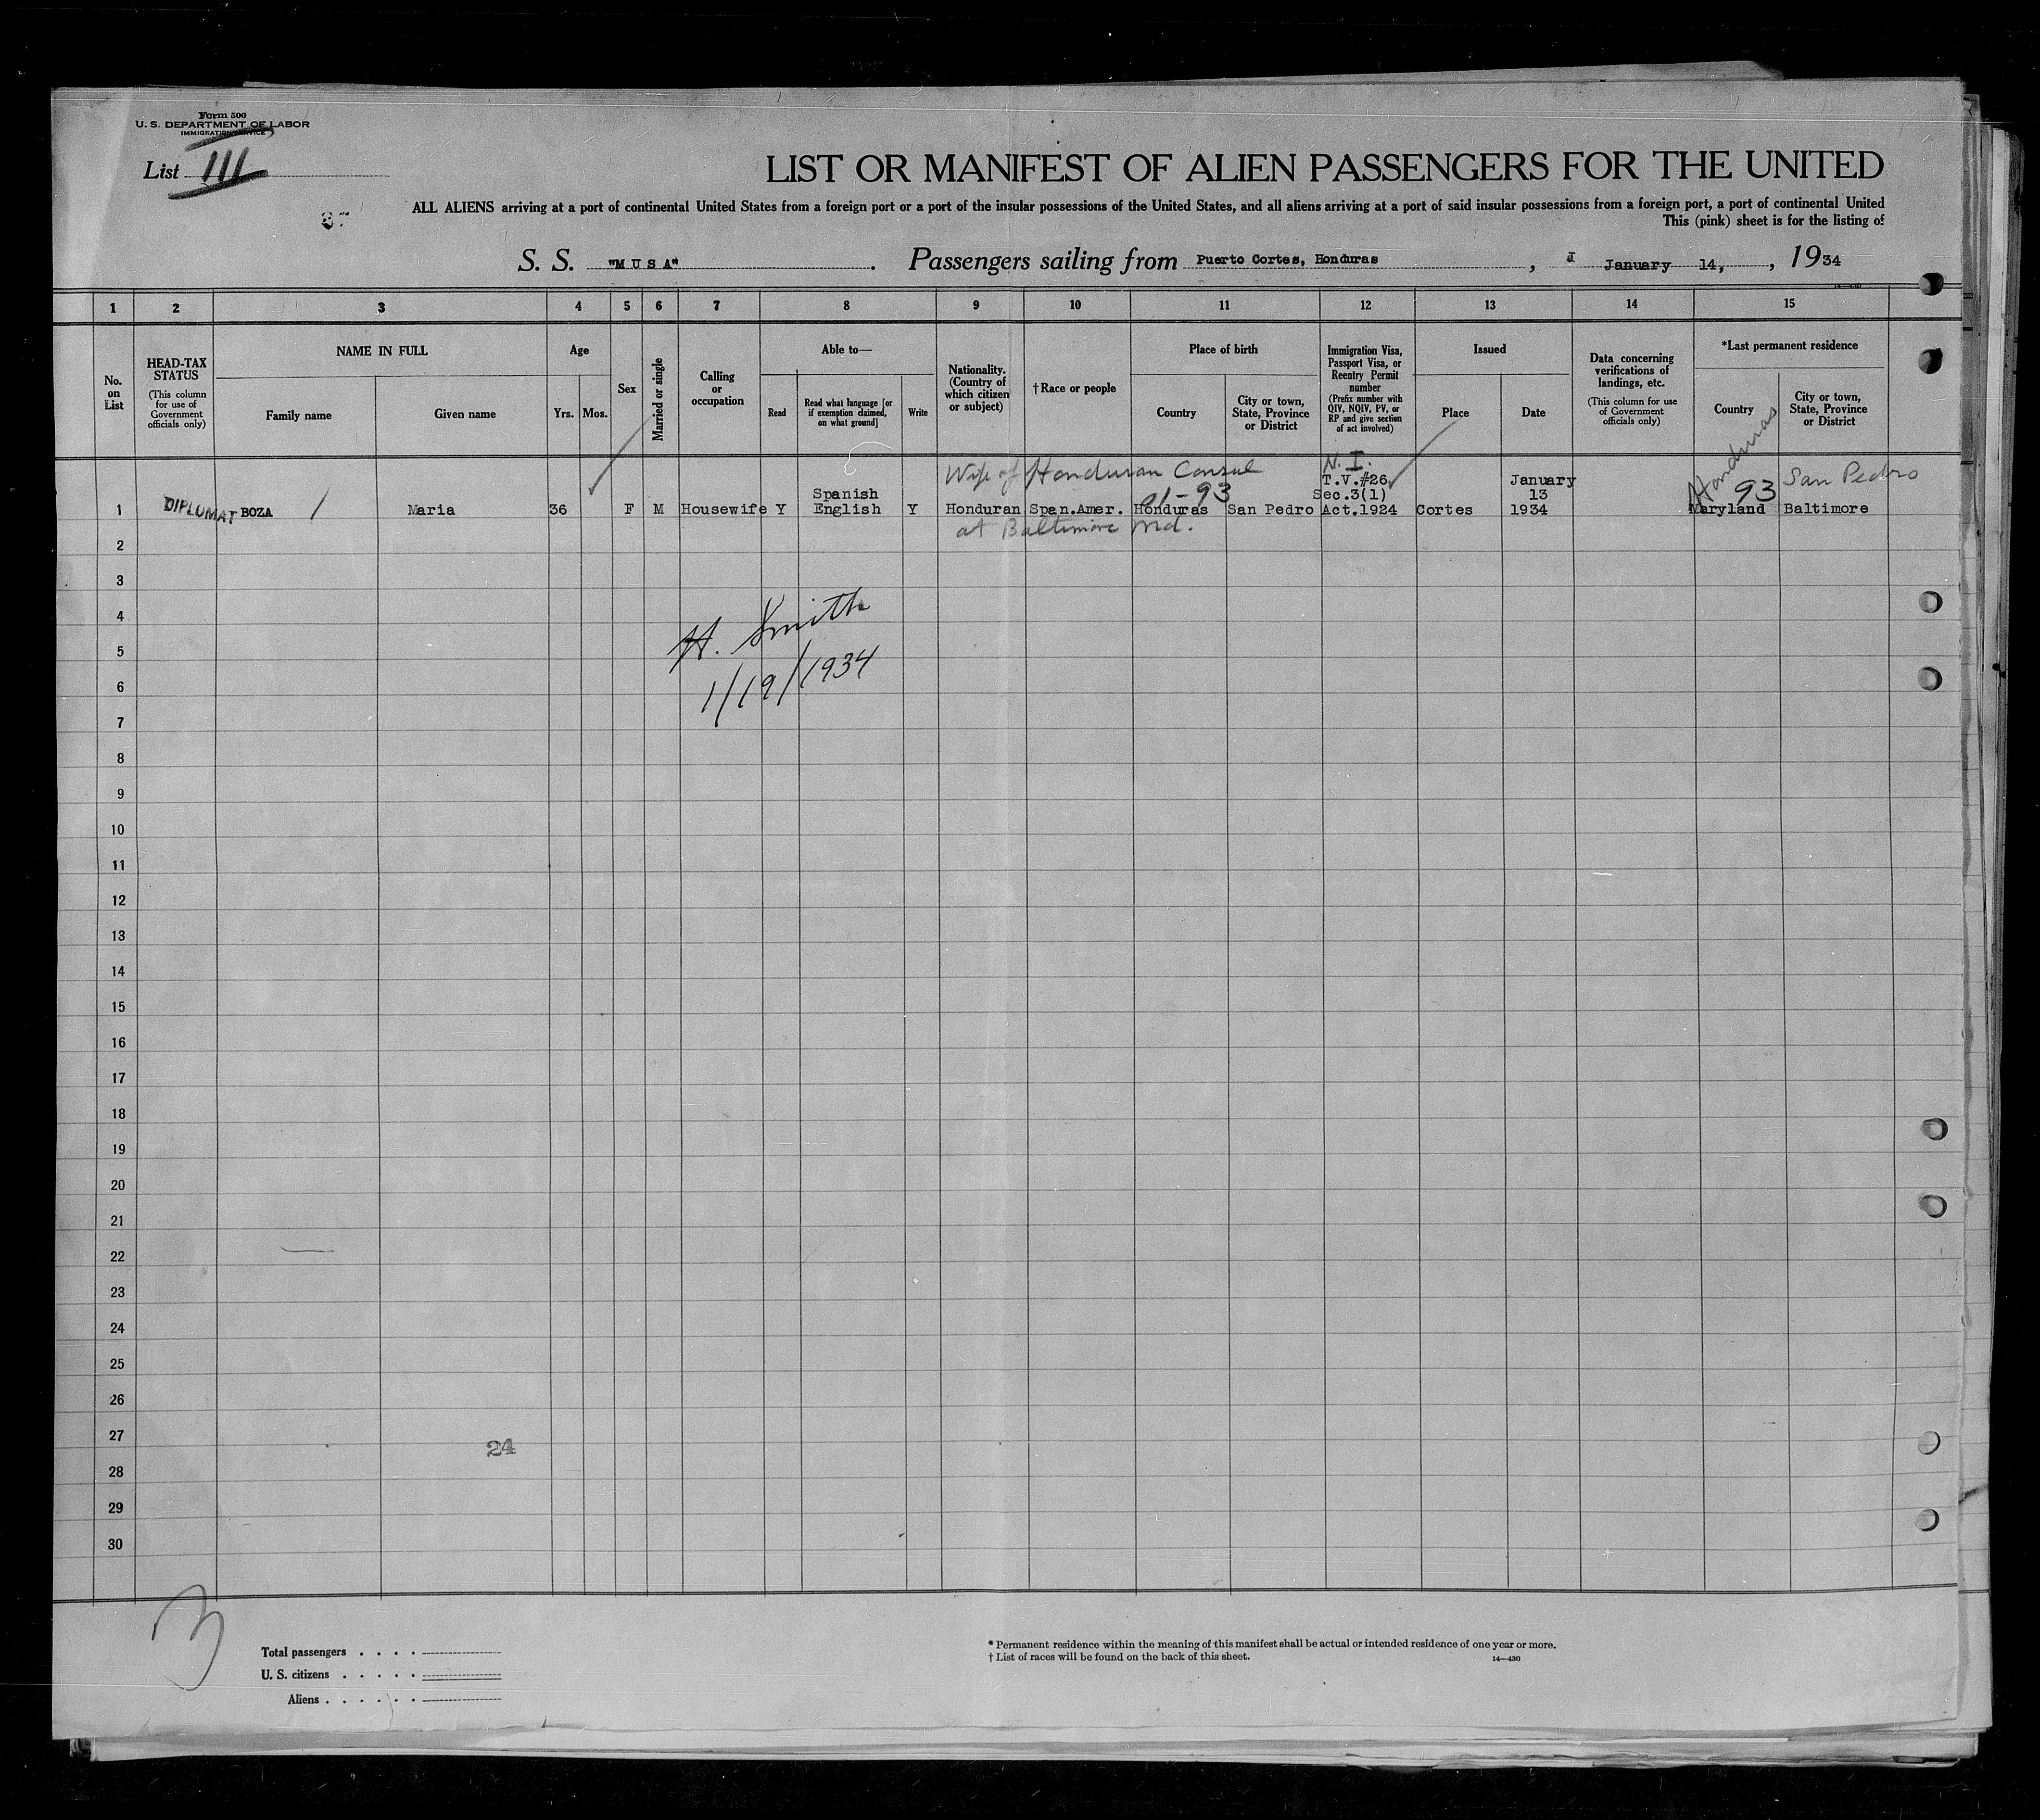 Form 500
U. S. DEPARTMENT OF LABOR
IMMIGRATION SERVICE
List III
LIST OR MANIFEST OF ALIEN PASSENGERS FOR THE UNITED
ALL ALIENS arriving at a port of continental United States from a foreign port or a port of the insular possessions of the United States, and all aliens arriving at a port of said insular possessions from a foreign port, a port of continental United
This (pink) sheet is for the listing of
S. S. "MUSA". Passengers sailing from Puerto Cortes, Honduras, January 14, , 1934
1 2 3 4 5 6 7 8 9 10 11 12 13 14 15
No. on List
HEAD-TAX STATUS
(This column for use of Government officials only)
NAME IN FULL
Family name
Given name
Age
Yrs. Mos.
Sex
Married or single
Calling or occupation
Able to—
Read
Read what language [or if exemption claimed, on what ground]
Write
Nationality. (Country of which citizen or subject)
†Race or people
Place of birth
Country
City or town, State, Province or District
Immigration Visa, Passport Visa, or Reentry Permit number
(Prefix number with QIV, NQIV, PV, or RP and give section of act involved)
Issued
Place
Date
Data concerning verifications of landings, etc.
(This column for use of Government officials only)
*Last permanent residence
Country
City or town, State, Province or District
Wife of Honduran Consul
N. I.
Honduras
San Pedro
T.V.#26
January
Spanish
01-93
Sec.3(1)
13
93
1 DIPLOMAT BOZA Maria 36 F M Housewife Y English Y Honduran Span.Amer. Honduras San Pedro Act.1924 Cortes 1934 Maryland Baltimore
at Baltimore Md.
2
3
4
H. Smith
5
6
1/19/1934
7
8
9
10
11
12
13
14
15
16
17
18
19
20
21
22
23
24
25
26
27
24
28
29
30
3
Total passengers . . . .
U. S. citizens . . . . .
Aliens . . . . . .
* Permanent residence within the meaning of this manifest shall be actual or intended residence of one year or more.
† List of races will be found on the back of this sheet.
14—430